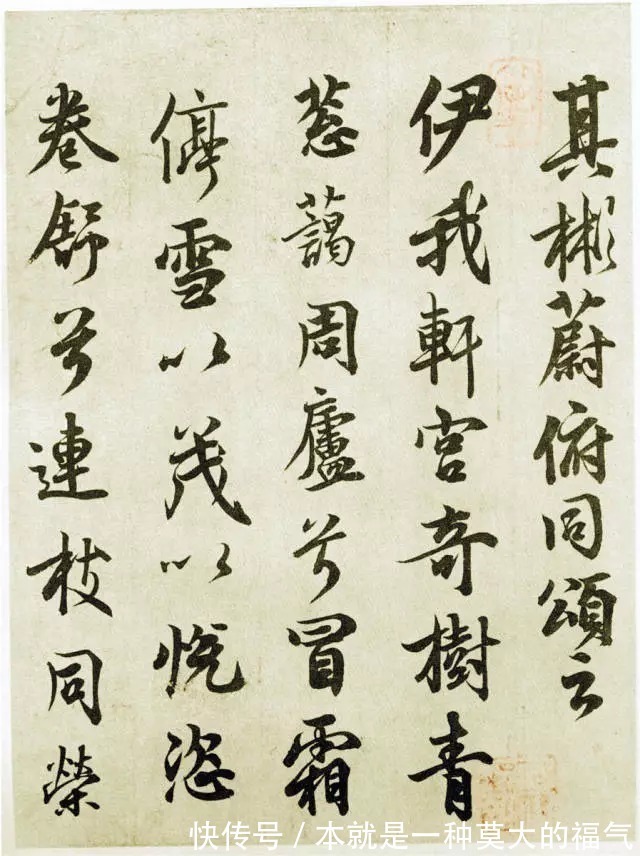 其彬蔚俯同頌云
伊我軒宮奇樹青
蔥藹周廬兮冒霜
停雪以茂以悅恣
卷舒兮連枝同榮
快传号 / 本就是一种莫大的福气